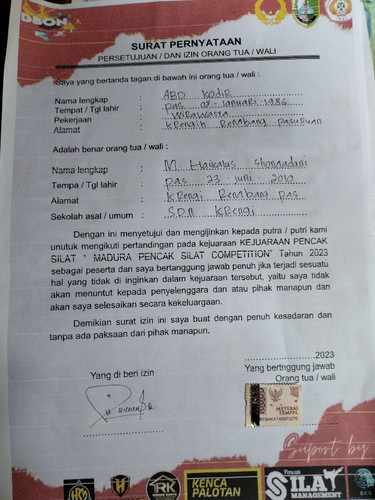 DBON
SURAT PERNYATAAN
PERSETUJUAN / DAN IZIN ORANG TUA / WALI
Saya yang bertanda tagan di bawah ini orang tua / wali :
Nama lengkap : ABD KODIR
Tempat / Tgl lahir : pas, 08-Januari-1986
Pekerjaan : WIRaWaSTa
Alamat : KRengih Rembang Pasuruan
Adalah benar orang tua / wali :
Nama lengkap : M. Haikalus
Tempa / Tgl lahir : pas 23 Juni 2010
Alamat : KRengi Rembang pas
Sekolah asal / umum : SDN KRengi
Dengan ini menyetujui dan mengijinkan kepada putra / putri kami
unutuk mengikuti pertandingan pada kejuaraan KEJUARAAN PENCAK
SILAT " MADURA PENCAK SILAT COMPETITION" Tahun 2023
sebagai peserta dan saya bertanggung jawab penuh jika terjadi sesuatu
hal yang tidak di inginkan dalam kejuaraan tersebut, yaitu saya tidak
akan menuntut kepada penyelenggara dan atau pihak manapun dan
akan saya selesaikan secara kekeluargaan.
Demikian surat izin ini saya buat dengan penuh kesadaran dan
tanpa ada paksaan dari pihak manapun.
........................2023
Yang di beri izin
Yang bertnggung jawab
Orang tua / wali
METERAI
TEMPEL
Suport by
HRM
RK
KENCA
PALOTAN
Pencak
SILAT
MANAGEMENT